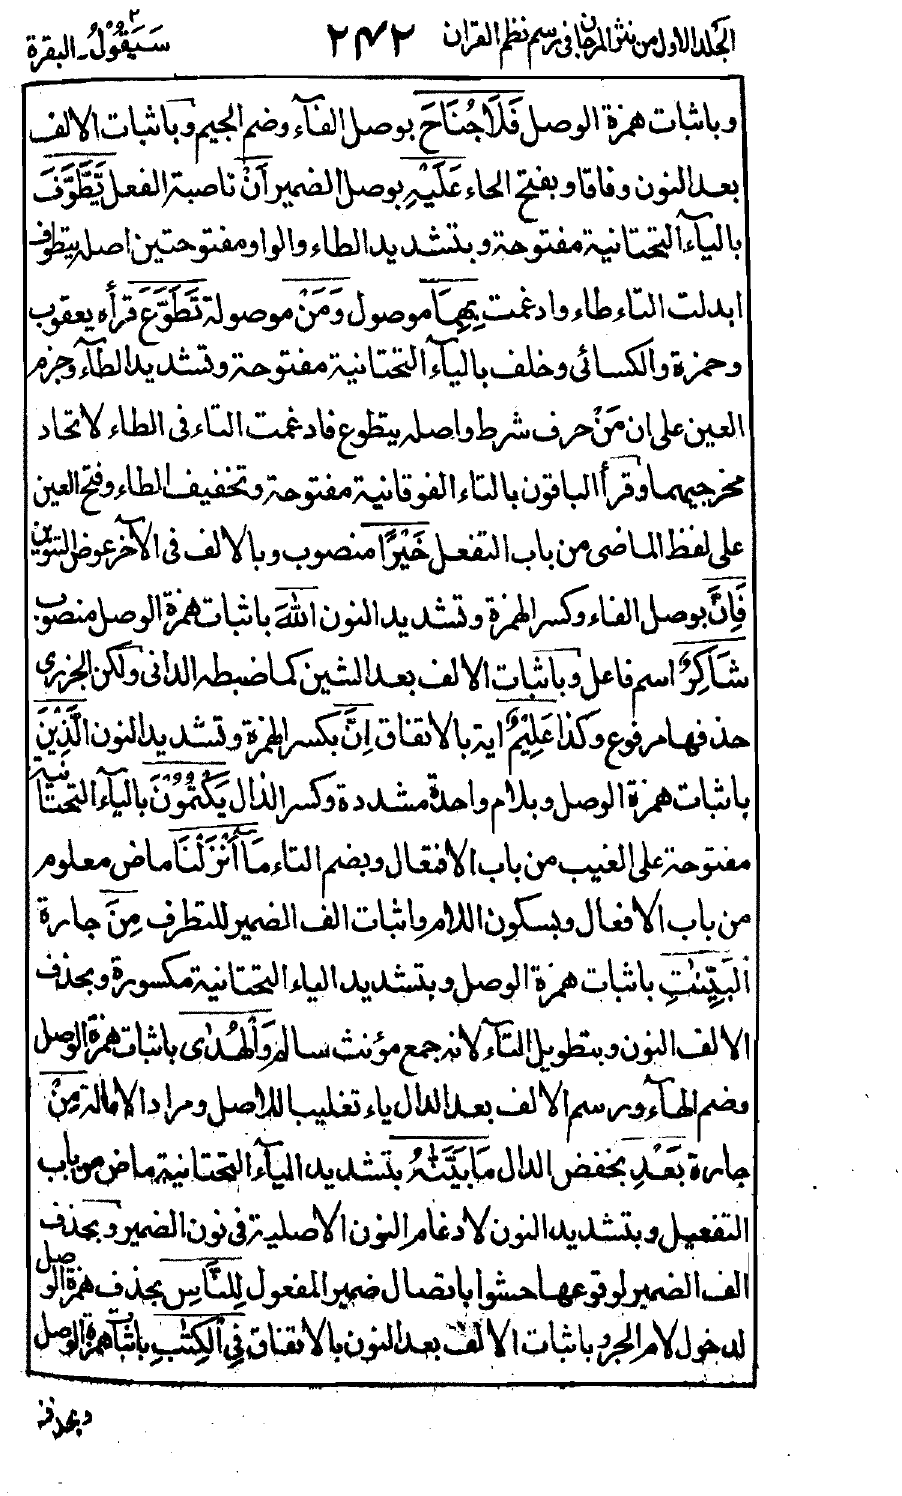 الجلد الاول من نثر المرجان فى رسم نظم القران ٢٤٢ سَيَقُولُ ٢ ـ البقرة
وباثبات همزة الوصل فَلَا جُنَاحَ بوصل الفآء وضم الجيم وباثبات الالف
بعد النون وفاقا وبفتح الحاء عَلَيْهِ بوصل الضمير اَنْ ناصبة الفعل يَطَّوَّفَ
باليآء التحتانية مفتوحة وبتشديد الطاء والواو مفتوحتين اصله يتطوف
ابدلت التاء طاء وادغمت بِهِمَا موصول وَمَنْ موصولة تَطَوَّعَ قرأه يعقوب
وحمزة والكسائى وخلف باليآء التحتانية مفتوحة وتشديد الطآء وجزم
العين على ان مَنْ حرف شرط واصله يتطوع فادغمت التاء فى الطاء لاتحاد
مخرجيهما وقرأ الباقون بالتاء الفوقانية مفتوحة وتخفيف الطاء وفتح العين
على لفظ الماضى من باب التفعل خَيْرًا منصوب وبالالف فى الآخر عوض التنوين
فَاِنَّ بوصل الفاء وكسر الهمزة وتشديد النون اللهَ باثبات همزة الوصل منصوب
شَاكِرٌ اسم فاعل وباثبات الالف بعد الشين كما ضبطه الدانى ولكن الجزرى
حذفها مرفوع وكذا عَلِيْمٌ اية بالاتفاق اِنَّ بكسر الهمزة وتشديد النون الَّذِيْنَ
باثبات همزة الوصل وبلام واحدة مشددة وكسر الذال يَكْتُمُوْنَ باليآء التحتانية
مفتوحة على الغيب من باب الافتعال وبضم التاء مَآ اَنْزَلْنَا ماض معلوم
من باب الافعال وبسكون اللام واثبات الف الضمير للتطرف مِنَ جارة
الْبَيِّنٰتِ باثبات همزة الوصل وبتشديد الياء التحتانية مكسورة وبحذف
الالف النون وبتطويل التآء لانه جمع مؤنث سالم وَالْهُدٰى باثبات همزة الوصل
وضم الهآء ورسم الالف بعد الدال ياء تغليبا للاصل ومراد الامالة مِنْ
جارة بَعْدِ بخفض الدال مَا بَيَّنّٰهُ بتشديد اليآء التحتانية ماض من باب
التفعيل وبتشديد النون لادغام النون الاصلية فى نون الضمير وبحذف
الف الضمير لوقوعها حشوا باتصال ضمير المفعول لِلنَّاسِ بحذف همزة الوصل
لدخول لام الجر وباثبات الالف بعد النون بالاتفاق فِى الْكِتٰبِ باثبات همزة الوصل
وبحذفه